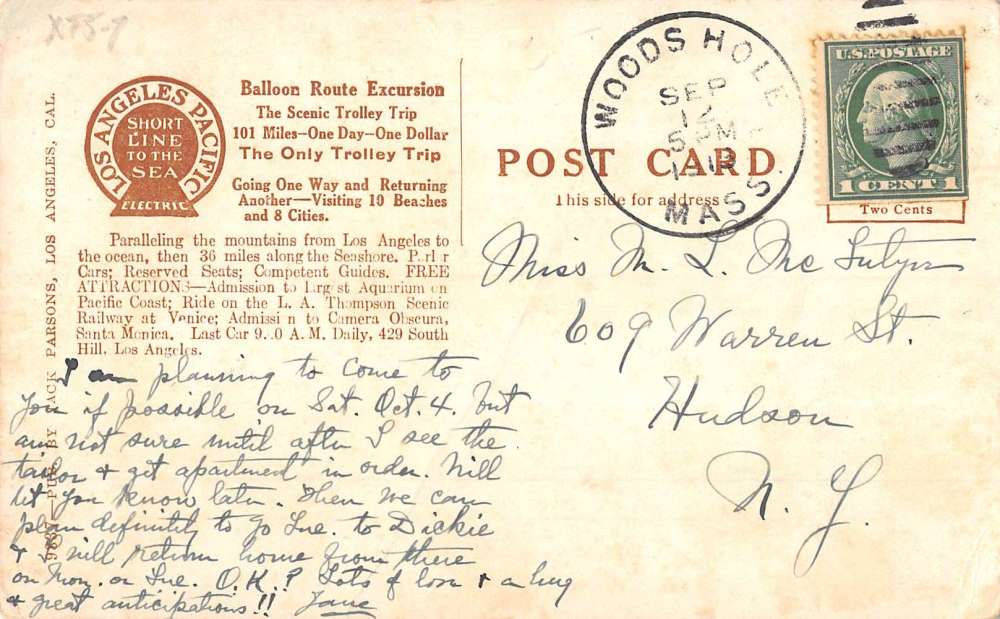 X75-7
LOS ANGELES PACIFIC
SHORT
LINE
TO THE
SEA
ELECTRIC
Balloon Route Excursion
The Scenic Trolley Trip
101 Miles—One Day—One Dollar
The Only Trolley Trip
Going One Way and Returning
Another—Visiting 10 Beaches
and 8 Cities.
Paralleling the mountains from Los Angeles to
the ocean, then 36 miles along the Seashore. Parlor
Cars; Reserved Seats; Competent Guides. FREE
ATTRACTIONS—Admission to largest Aquarium on
Pacific Coast; Ride on the L. A. Thompson Scenic
Railway at Venice; Admission to Camera Obscura,
Santa Monica. Last Car 9. 0 A. M. Daily, 429 South
Hill, Los Angeles.
PUB. BY JACK PARSONS, LOS ANGELES, CAL.
WOODS HOLE
SEP
5 PM
MASS.
U.S. POSTAGE
1 CENT 1
POST CARD
This side for address
Two Cents
Miss M. L. McIntyre
609 Warren St.
Hudson
N. Y.
I am planning to come to
you if possible on Sat. Oct. 4. but
am not sure until after I see the
tailor & get apartment in order. Will
let you know later. Then we can
plan definitely to go Tue. to Dickie
& I will return home from there
on Mon. or Tue. O.K.? Lots of love & a hug
& great anticipations!! Jane